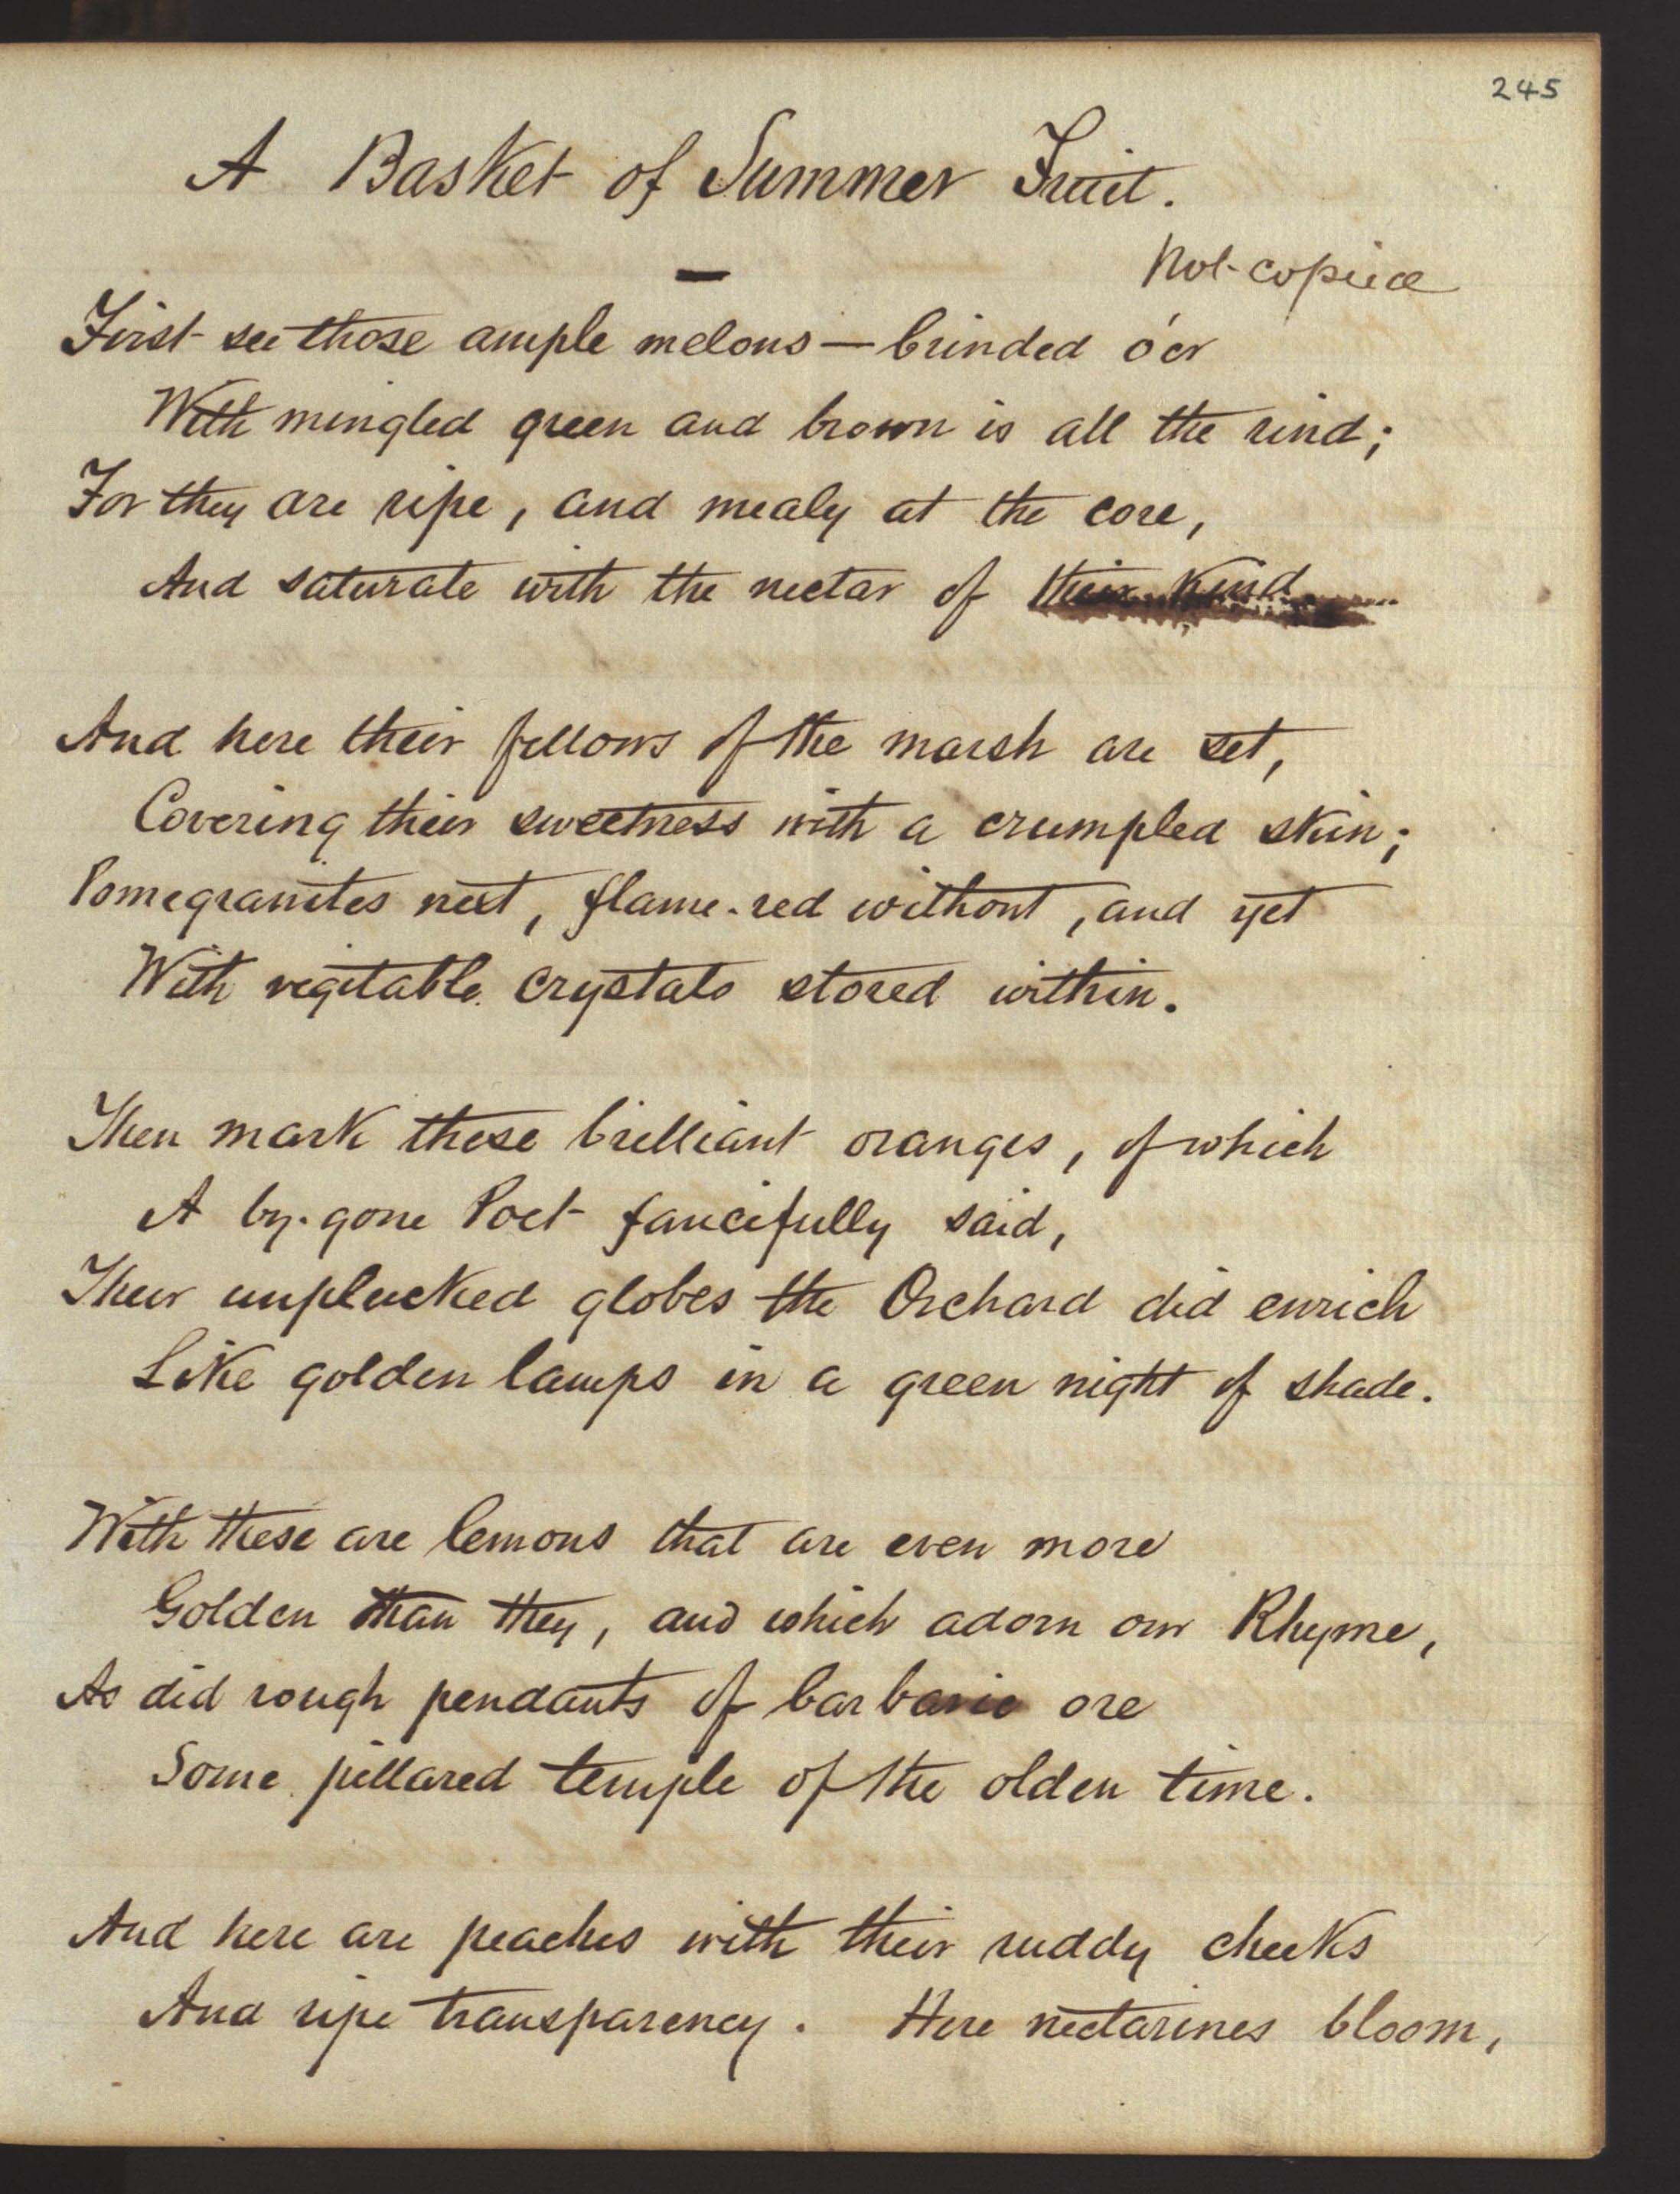 245
A Basket of Summer Fruit.
Not copied
First see those ample melons — brinded o'er
With mingled green and brown is all the rind;
For they are ripe, and mealy at the core,
And saturate with the nectar of their kind.
And here their fellows of the marsh are set,
Covering their sweetness with a crumpled skin;
Pomegranites next, flame-red without, and yet
With vegitable crystals stored within.
Then mark these brilliant oranges, of which
A by-gone Poet fancifully said,
Their unplucked globes the Orchard did enrich
Like golden lamps in a green night of shade.
With these are lemons that are even more
Golden than they, and which adorn our Rhyme,
As did rough pendants of barbaric ore
Some pillared temple of the olden time.
And here are peaches with their ruddy cheeks
And ripe transparency. Here nectarines bloom,